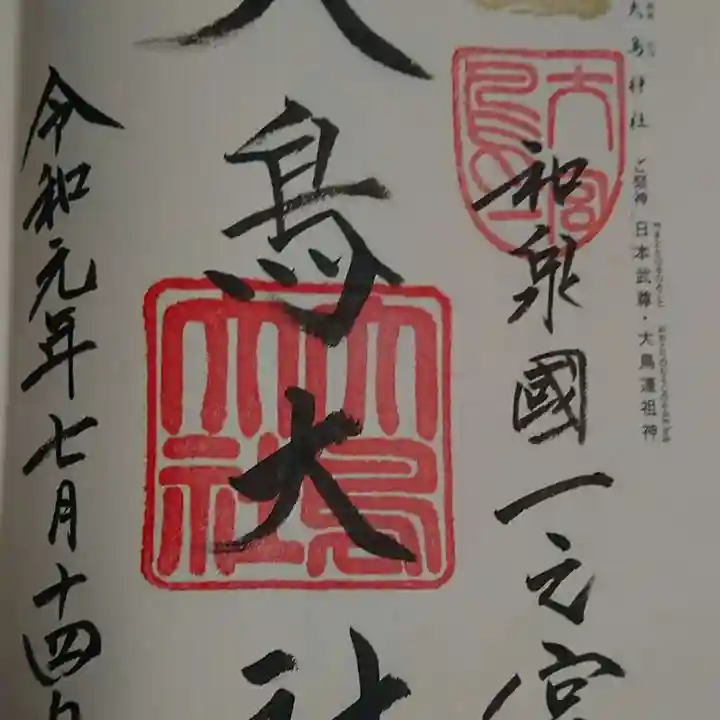 大鳥神社 ご祭神 日本武尊・大鳥連祖神
和泉國一之宮
大鳥大社
令和元年七月十四日
大鳥一宮
大鳥大社